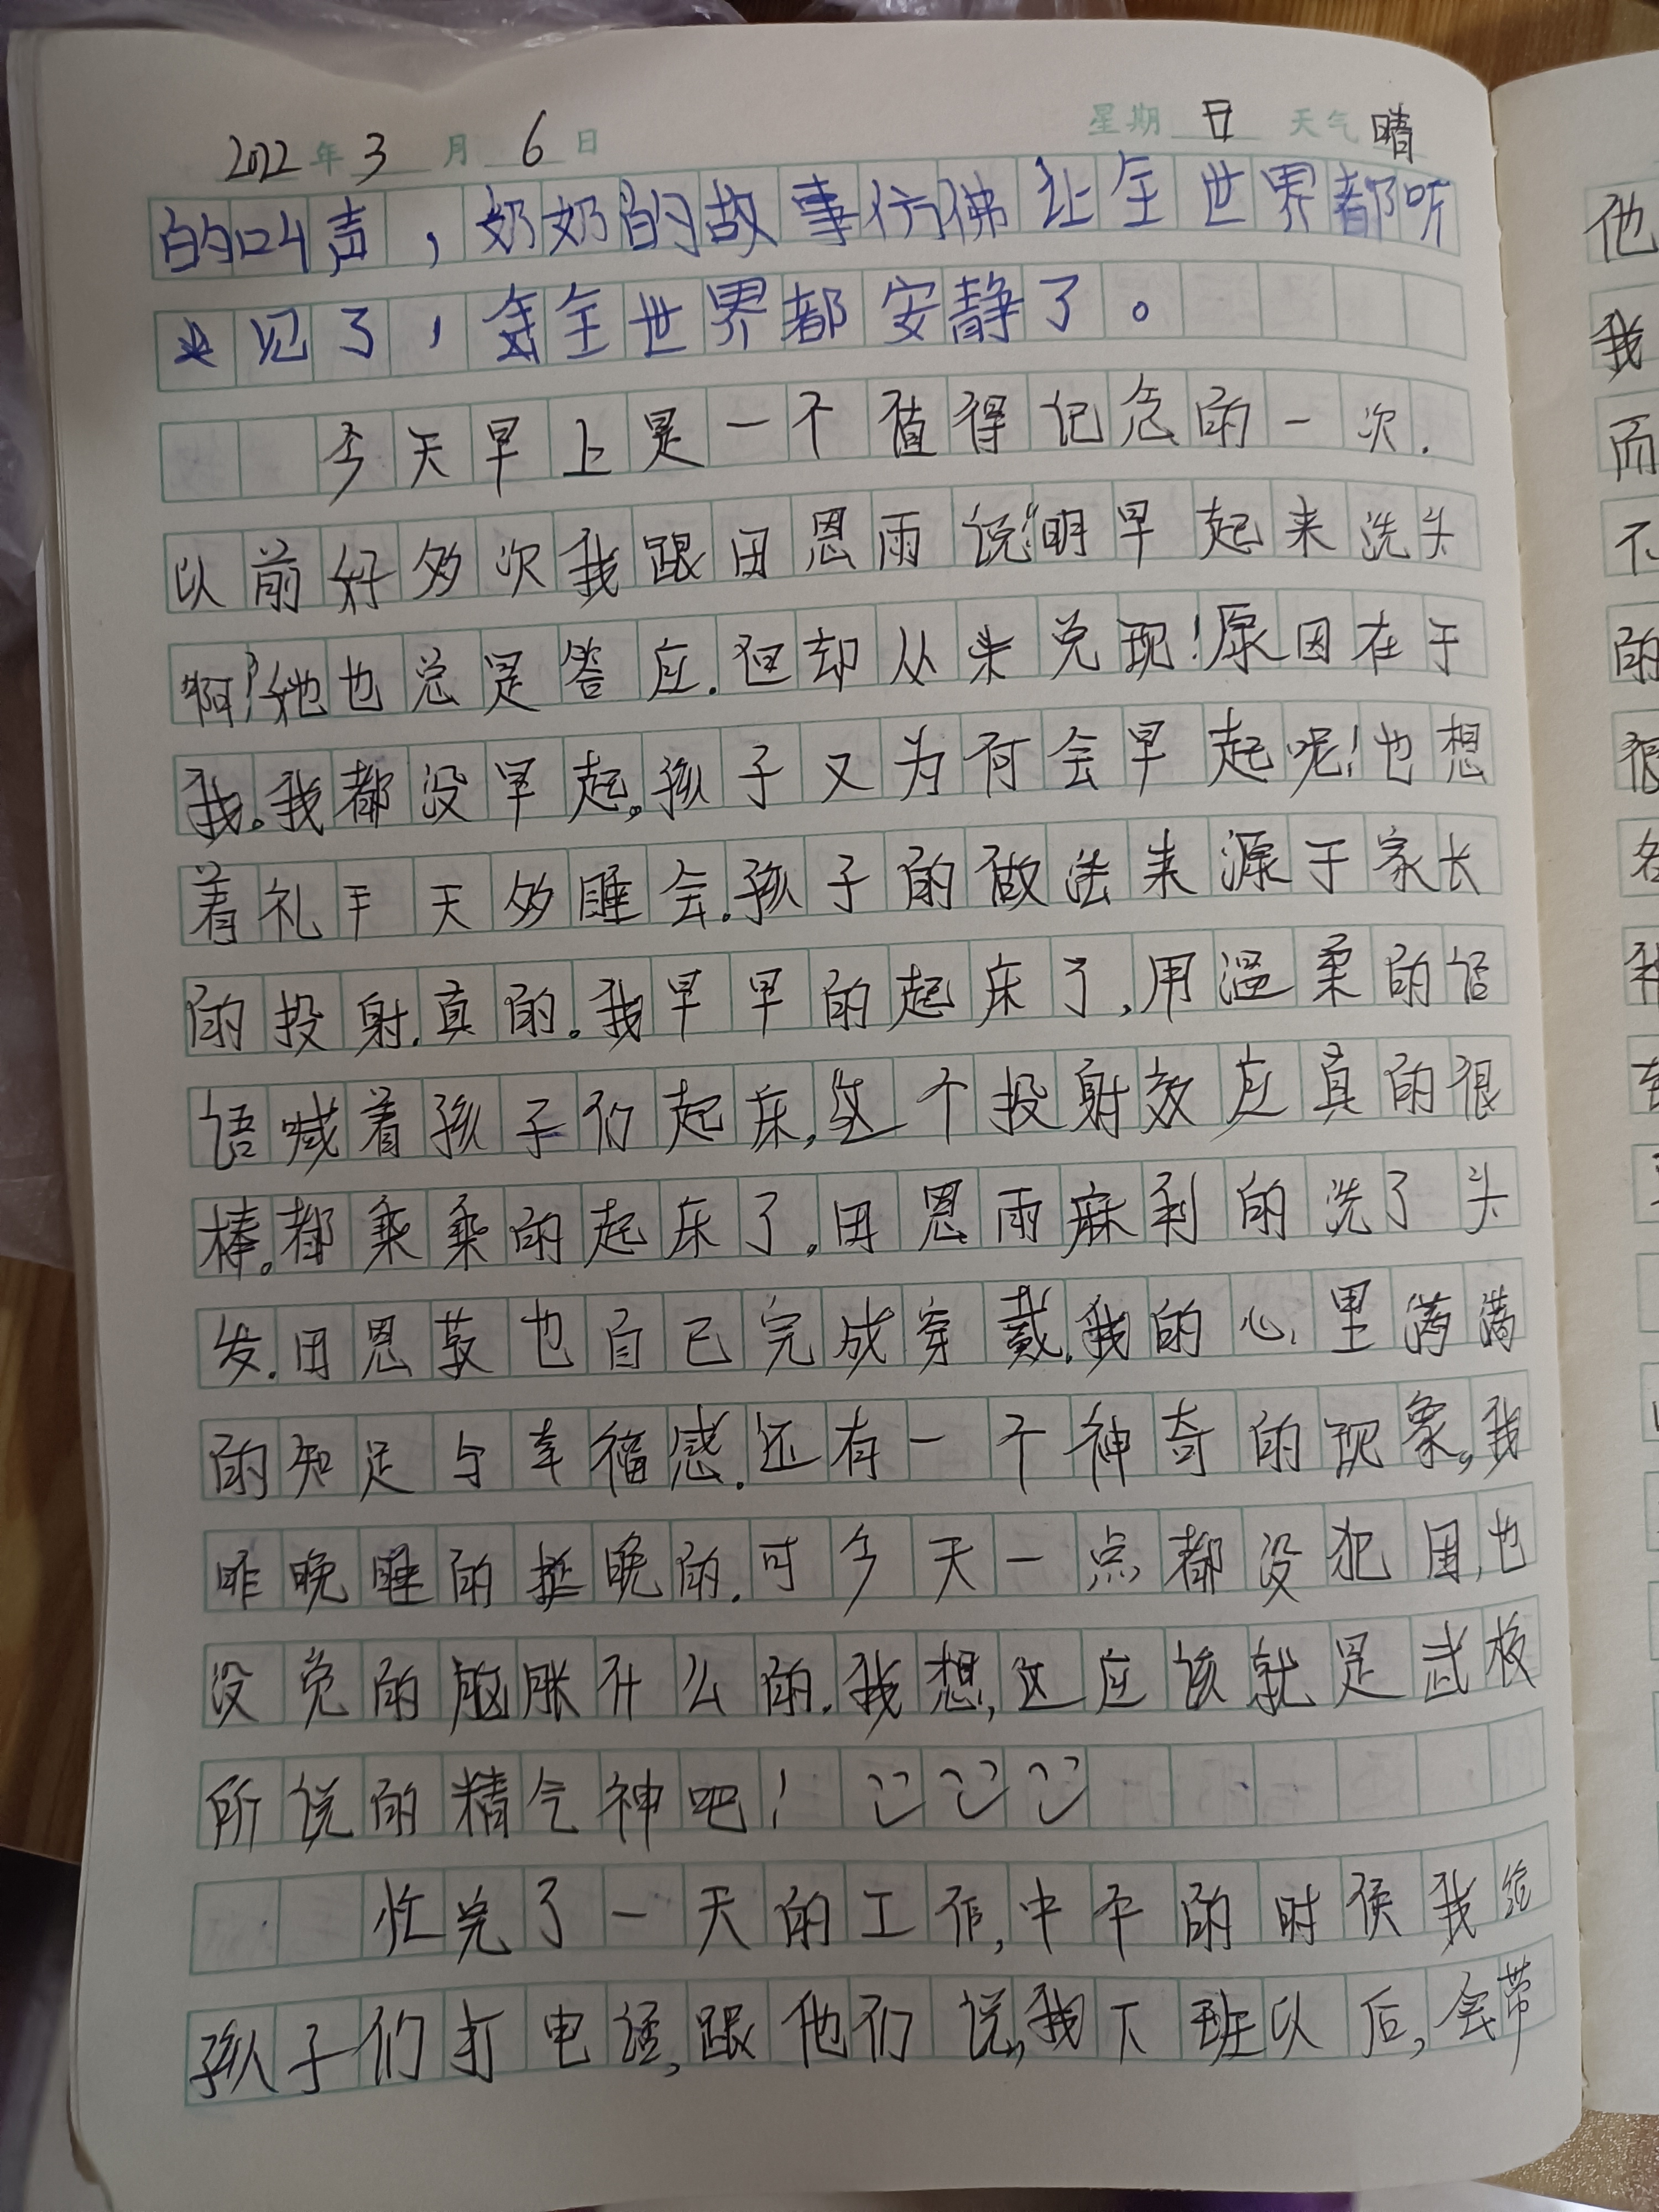 2022年3月6日 星期日 天气晴
的叫声，奶奶的故事仿佛让全世界都听
见了，全世界都安静了。
今天早上是一个值得记念的一次.
以前好多次我跟田恩雨说"明早起来洗头
啊!"她也总是答应.但却从未兑现!原因在于
我。我都没早起。孩子又为何会早起呢!也想
着礼天多睡会.孩子的做法来源于家长
的投射.真的。我早早的起床了,用温柔的话
语喊着孩子们起床,这个投射效应真的很
棒。都乘乘的起床了.田恩雨麻利的洗了头
发.田恩也自己完成穿戴.我的心里满满
的知足与幸福感.还有一个神奇的现象,我
昨晚睡的挺晚的.可今天一点都没犯困,也
没觉的脑胀什么的.我想,这应该就是武校
所说的精气神吧!
忙完了一天的工作,中午的时侯我给
孩子们打电话,跟他们说,我下班以后,会带
他
我
而
不
的